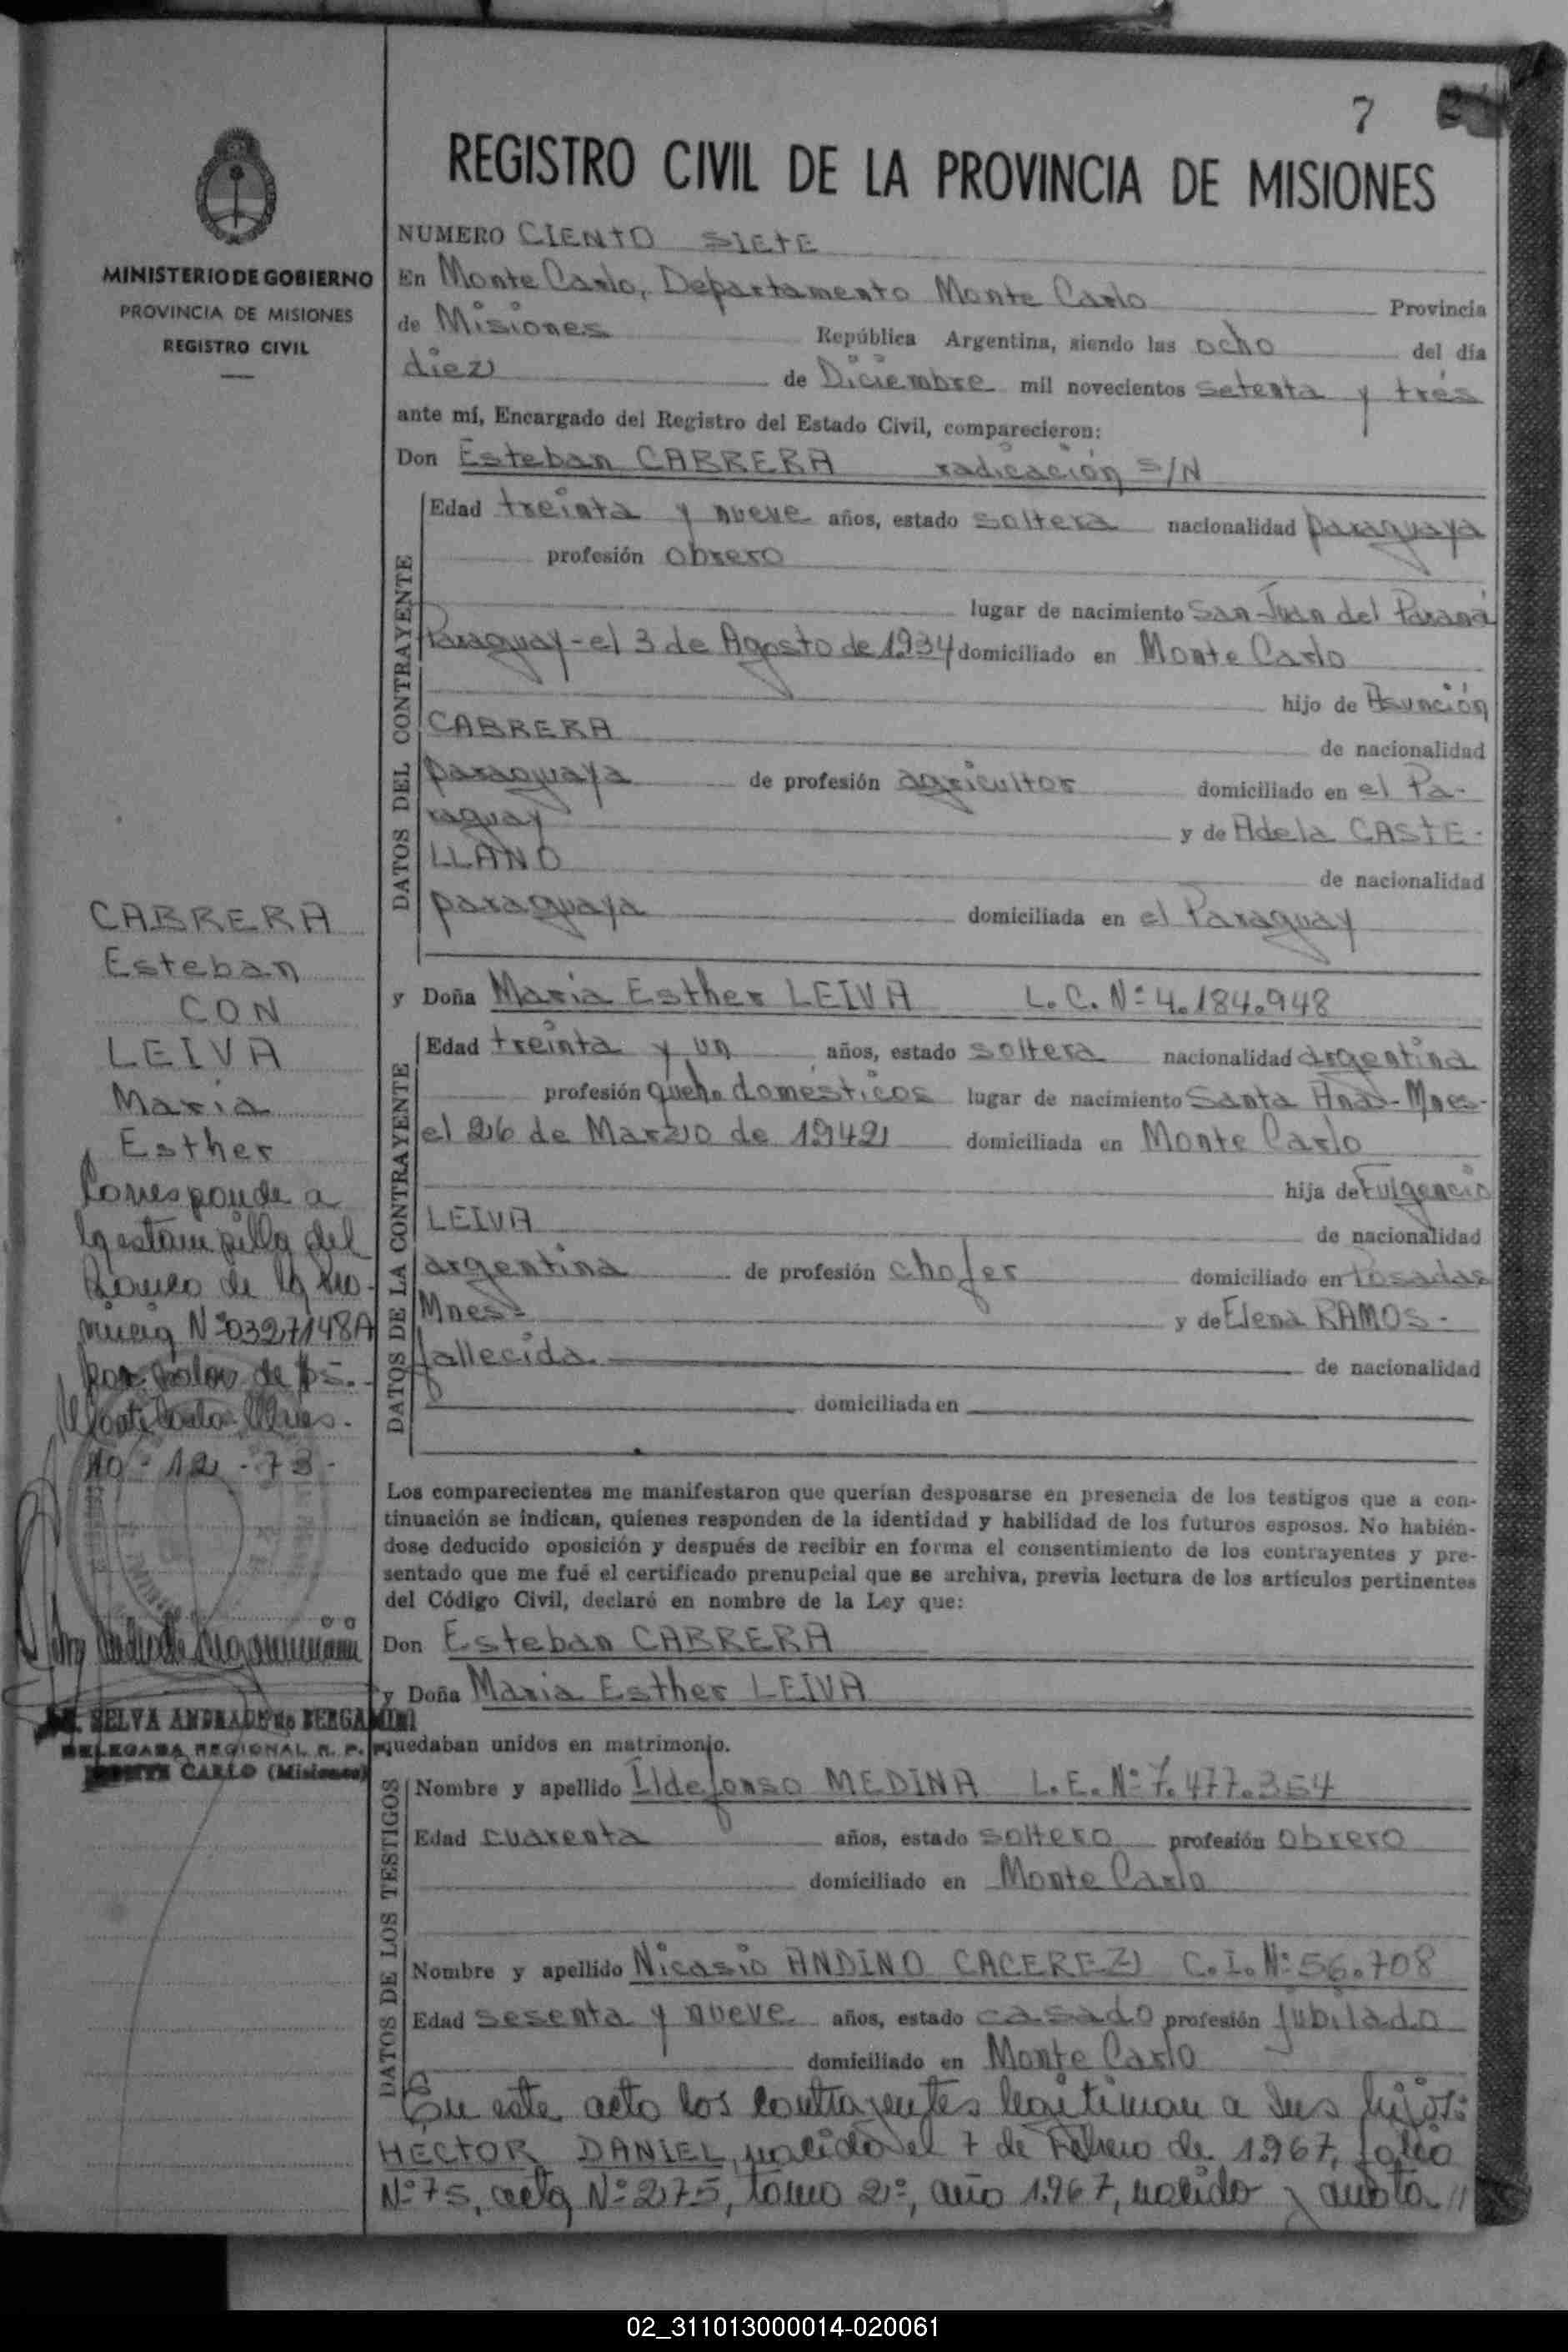 7
REGISTRO CIVIL DE LA PROVINCIA DE MISIONES
MINISTERIO DE GOBIERNO
PROVINCIA DE MISIONES
REGISTRO CIVIL
NUMERO CIENTO SIETE
En Monte Carlo, Departamento Monte Carlo Provincia
de Misiones República Argentina, siendo las ocho del día
diez de Diciembre mil novecientos setenta y tres
ante mí, Encargado del Registro del Estado Civil, comparecieron:
Don Esteban CABRERA radicación S/N
DATOS DEL CONTRAYENTE
Edad treinta y nueve años, estado soltera nacionalidad paraguaya
profesión obrero
lugar de nacimiento San Juan del Paraná
Paraguay - el 3 de Agosto de 1934 domiciliado en Monte Carlo
hijo de Asunción
CABRERA de nacionalidad
paraguaya de profesión agricultor domiciliado en el Pa-
raguay y de Adela CASTE-
LLANO de nacionalidad
paraguaya domiciliada en el Paraguay
y Doña Maria Esther LEIVA L.C. Nº 4.184.948
DATOS DE LA CONTRAYENTE
Edad treinta y un años, estado soltera nacionalidad argentina
profesión queh. domésticos lugar de nacimiento Santa Ana - Mnes-
el 26 de Marzo de 1942 domiciliada en Monte Carlo
hija de Fulgencio
LEIVA de nacionalidad
argentina de profesión chofer domiciliado en Posadas
Mnes- y de Elena RAMOS-
fallecida. de nacionalidad
domiciliada en
Los comparecientes me manifestaron que querían desposarse en presencia de los testigos que a con-
tinuación se indican, quienes responden de la identidad y habilidad de los futuros esposos. No habién-
dose deducido oposición y después de recibir en forma el consentimiento de los contrayentes y pre-
sentado que me fué el certificado prenupcial que se archiva, previa lectura de los artículos pertinentes
del Código Civil, declaré en nombre de la Ley que:
Don Esteban CABRERA
y Doña Maria Esther LEIVA
quedaban unidos en matrimonio.
DATOS DE LOS TESTIGOS
Nombre y apellido Ildefonso MEDINA L.E. Nº 7.477.354
Edad cuarenta años, estado soltero profesión obrero
domiciliado en Monte Carlo
Nombre y apellido Nicasio ANDINO CACEREZ C.I. Nº 56.708
Edad sesenta y nueve años, estado casado profesión jubilado
domiciliado en Monte Carlo
En este acto los contrayentes legitiman a sus hijos:
HECTOR DANIEL, nacido el 7 de Febrero de 1.967, folio
Nº 75, acta Nº 275, tomo 2º, año 1.967, nacido y anota //
CABRERA
Esteban
CON
LEIVA
Maria
Esther
Corresponde a
la estampilla del
Banco de la Pro-
vincia Nº 0327148A
por valor de $5.-
Monte Carlo Mnes.
10 - 12 - 73 -
SELVA ANDRADE de BERGAMINI
DELEGADA REGIONAL R. P.
MONTE CARLO (Misiones)
02_311013000014-020061